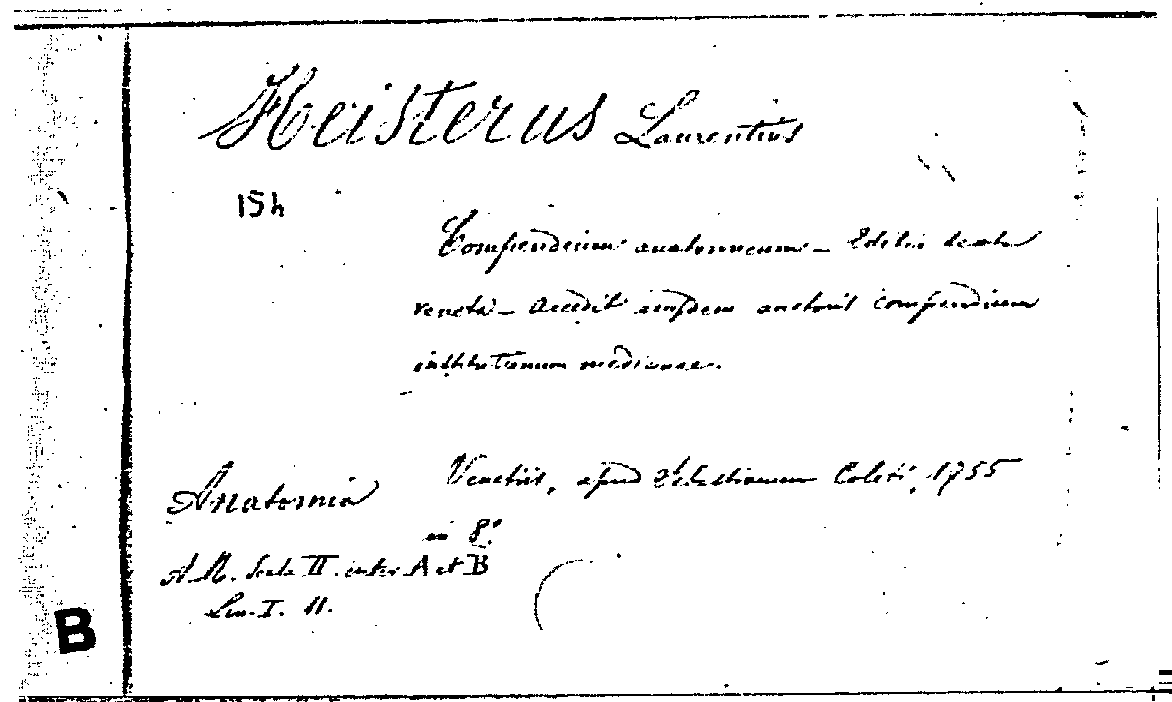 Heisterus Laurentius
15h
Compendium anatomicum - Editio sexta
veneta - Accedit eiusdem auctoris compendium
institutionum medicinae.
Venetiis, apud Sebastianum Coleti, 1755
Anatomia
in 8°
A. M. Scala II. inter A et B
Lin. I. 11.
B